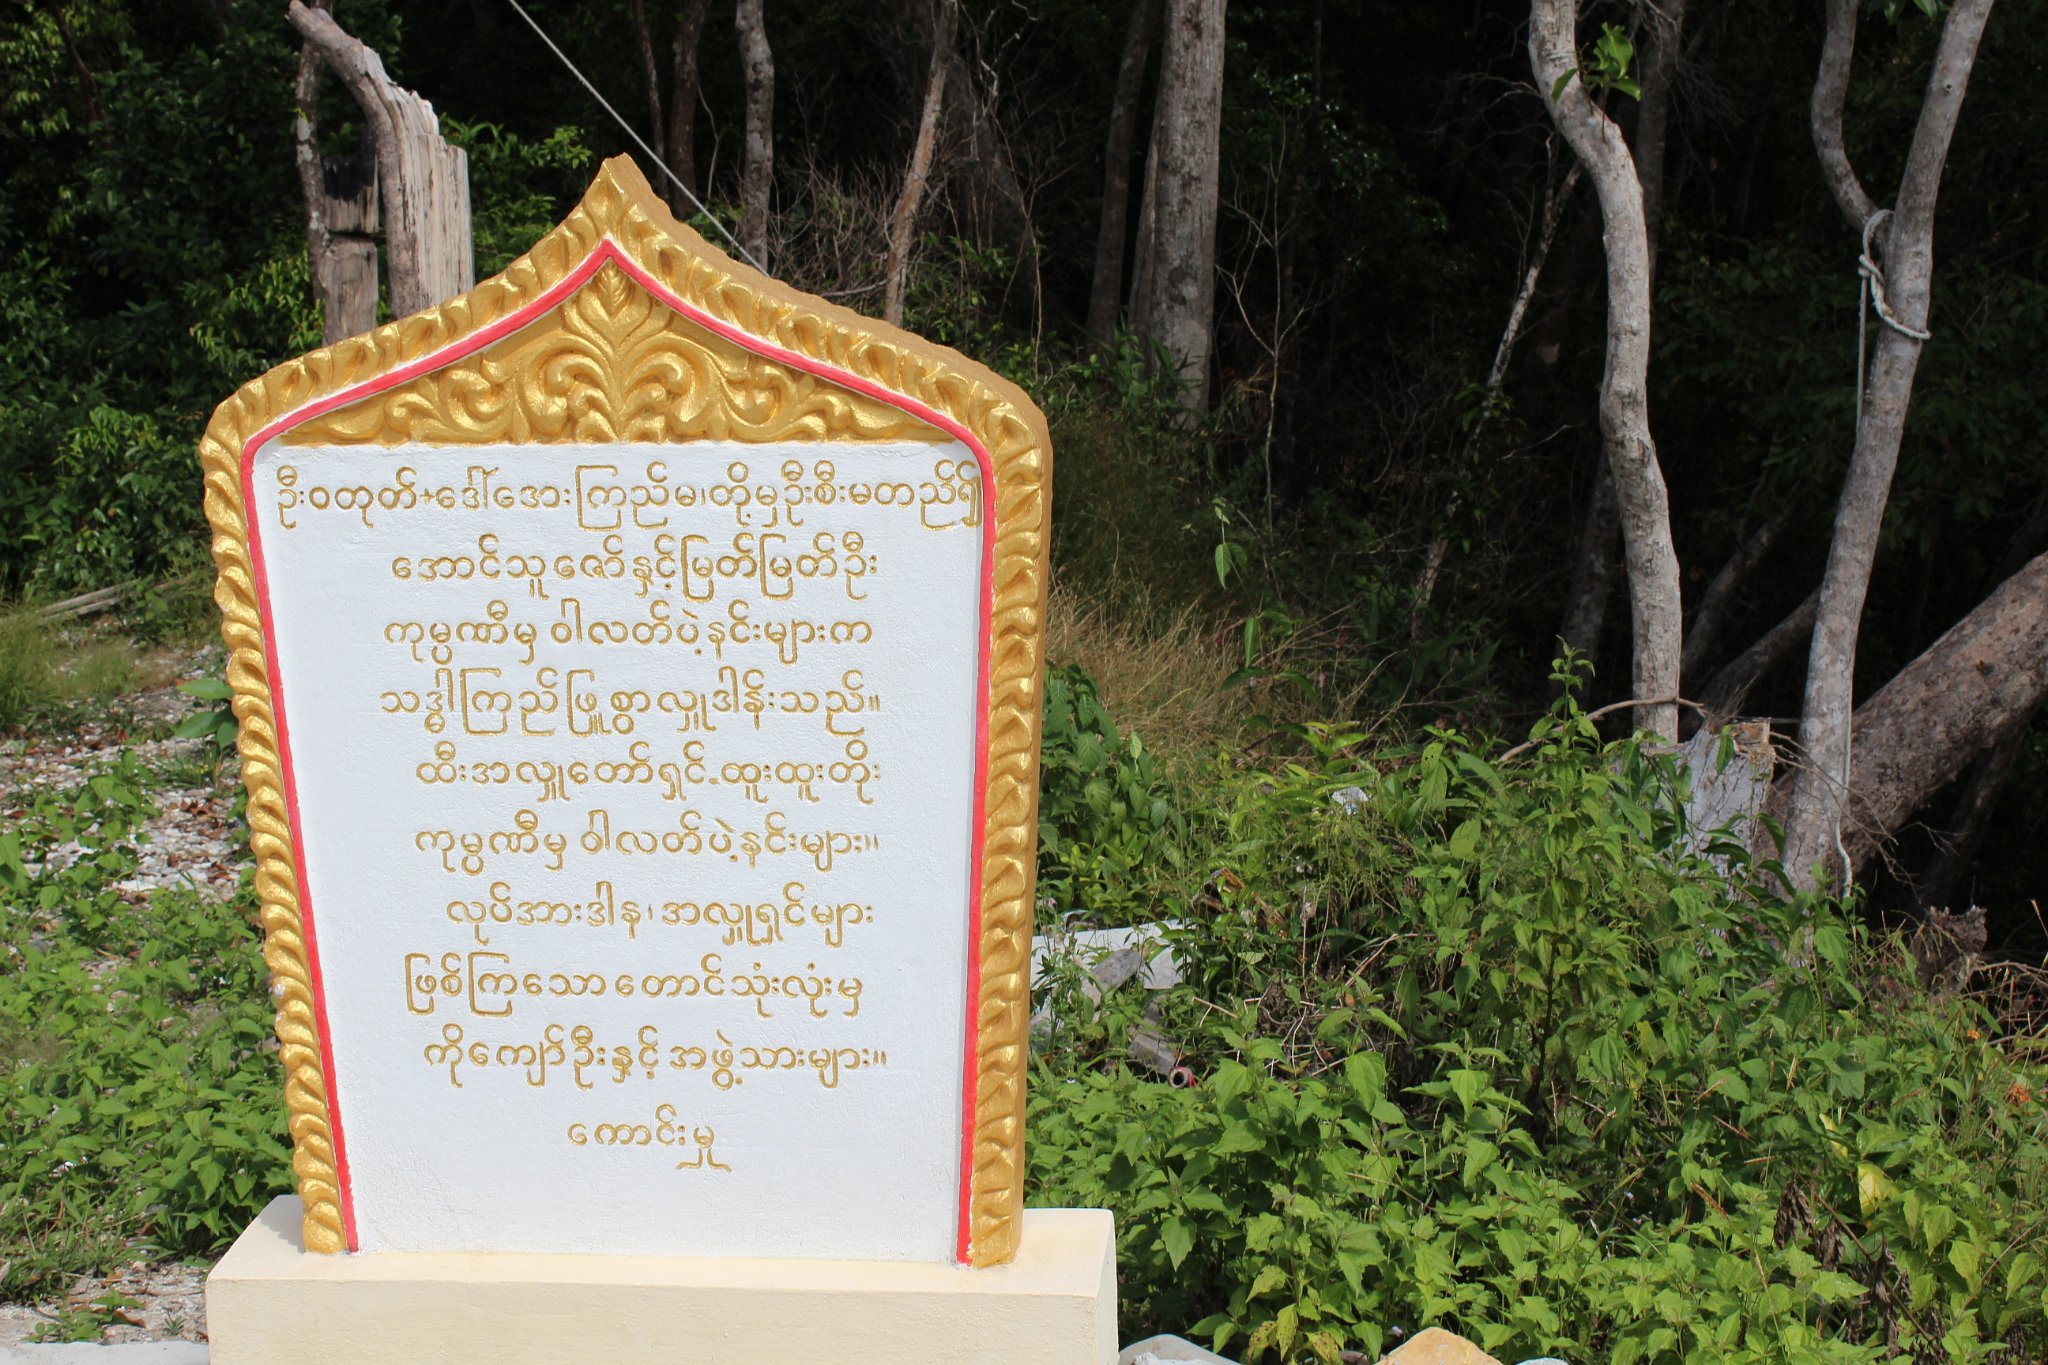 ဦးဝတုတ်+ဒေါ်အေးကြည်မ၊တို့မှဦးစီးမတည်၍
အောင်သူဇော်နှင့်မြတ်မြတ်ဦး
ကုမ္ပဏီမှ ဝါလတ်ပဲ့နင်းများက
သဒ္ဓါကြည်ဖြူစွာလှူဒါန်းသည်။
ထီးအလှူတော်ရှင်-ထူးထူးတိုး
ကုမ္ပဏီမှ ဝါလတ်ပဲ့နင်းများ။
လုပ်အားဒါန၊အလှူရှင်များ
ဖြစ်ကြသော တောင်သုံးလုံးမှ
ကိုကျော်ဦးနှင့် အဖွဲ့သားများ။
ကောင်းမှု